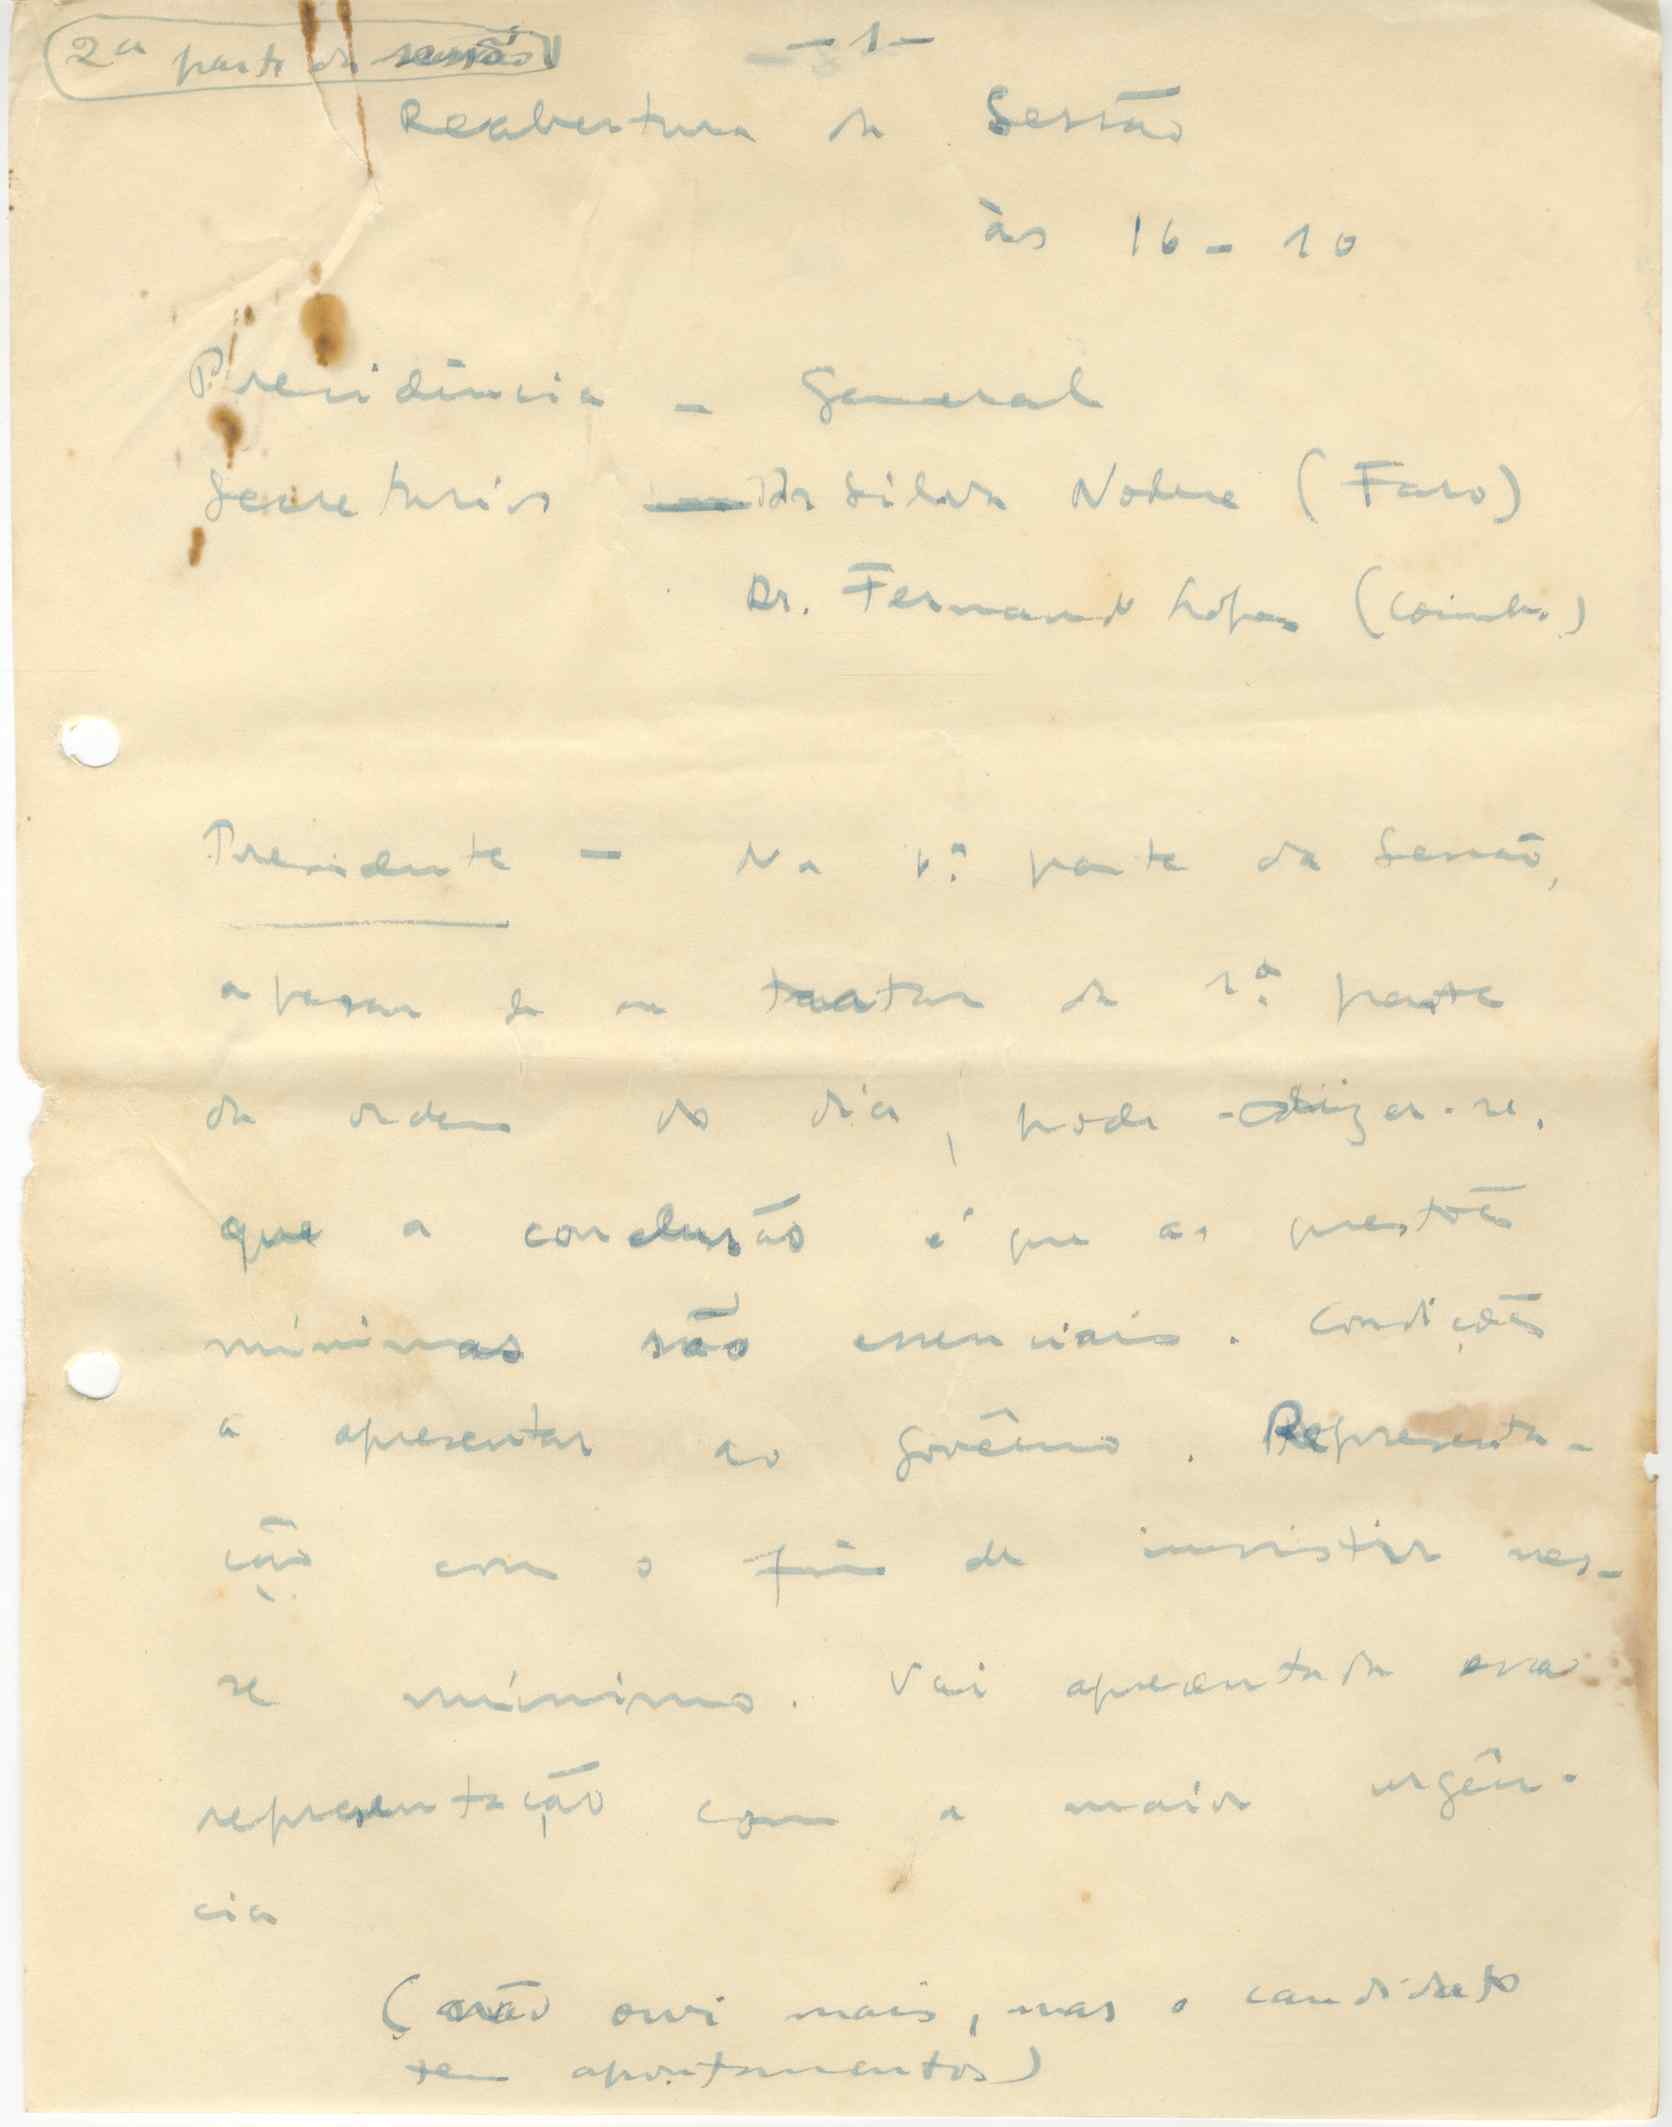 2ª parte da sessão
- 1 -
Reabertura da Sessão
às 16 - 10
Presidência - General
Secretários Dr Silva Nobre (Faro)
Dr. Fernando Lopes (Coimbra)
Presidente - Na 1ª parte da Sessão,
apesar de se tratar da 1ª parte
da ordem do dia, pode dizer-se.
que a conclusão é que as questões
mínimas são essenciais. Condições
a apresentar ao Govêrno. Representa-
ção com o fim de insistir nes-
se mínimo. Vai apresentada essa
representação com a maior urgên-
cia
(não ouvi mais, mas o candidato
tem apontamentos)